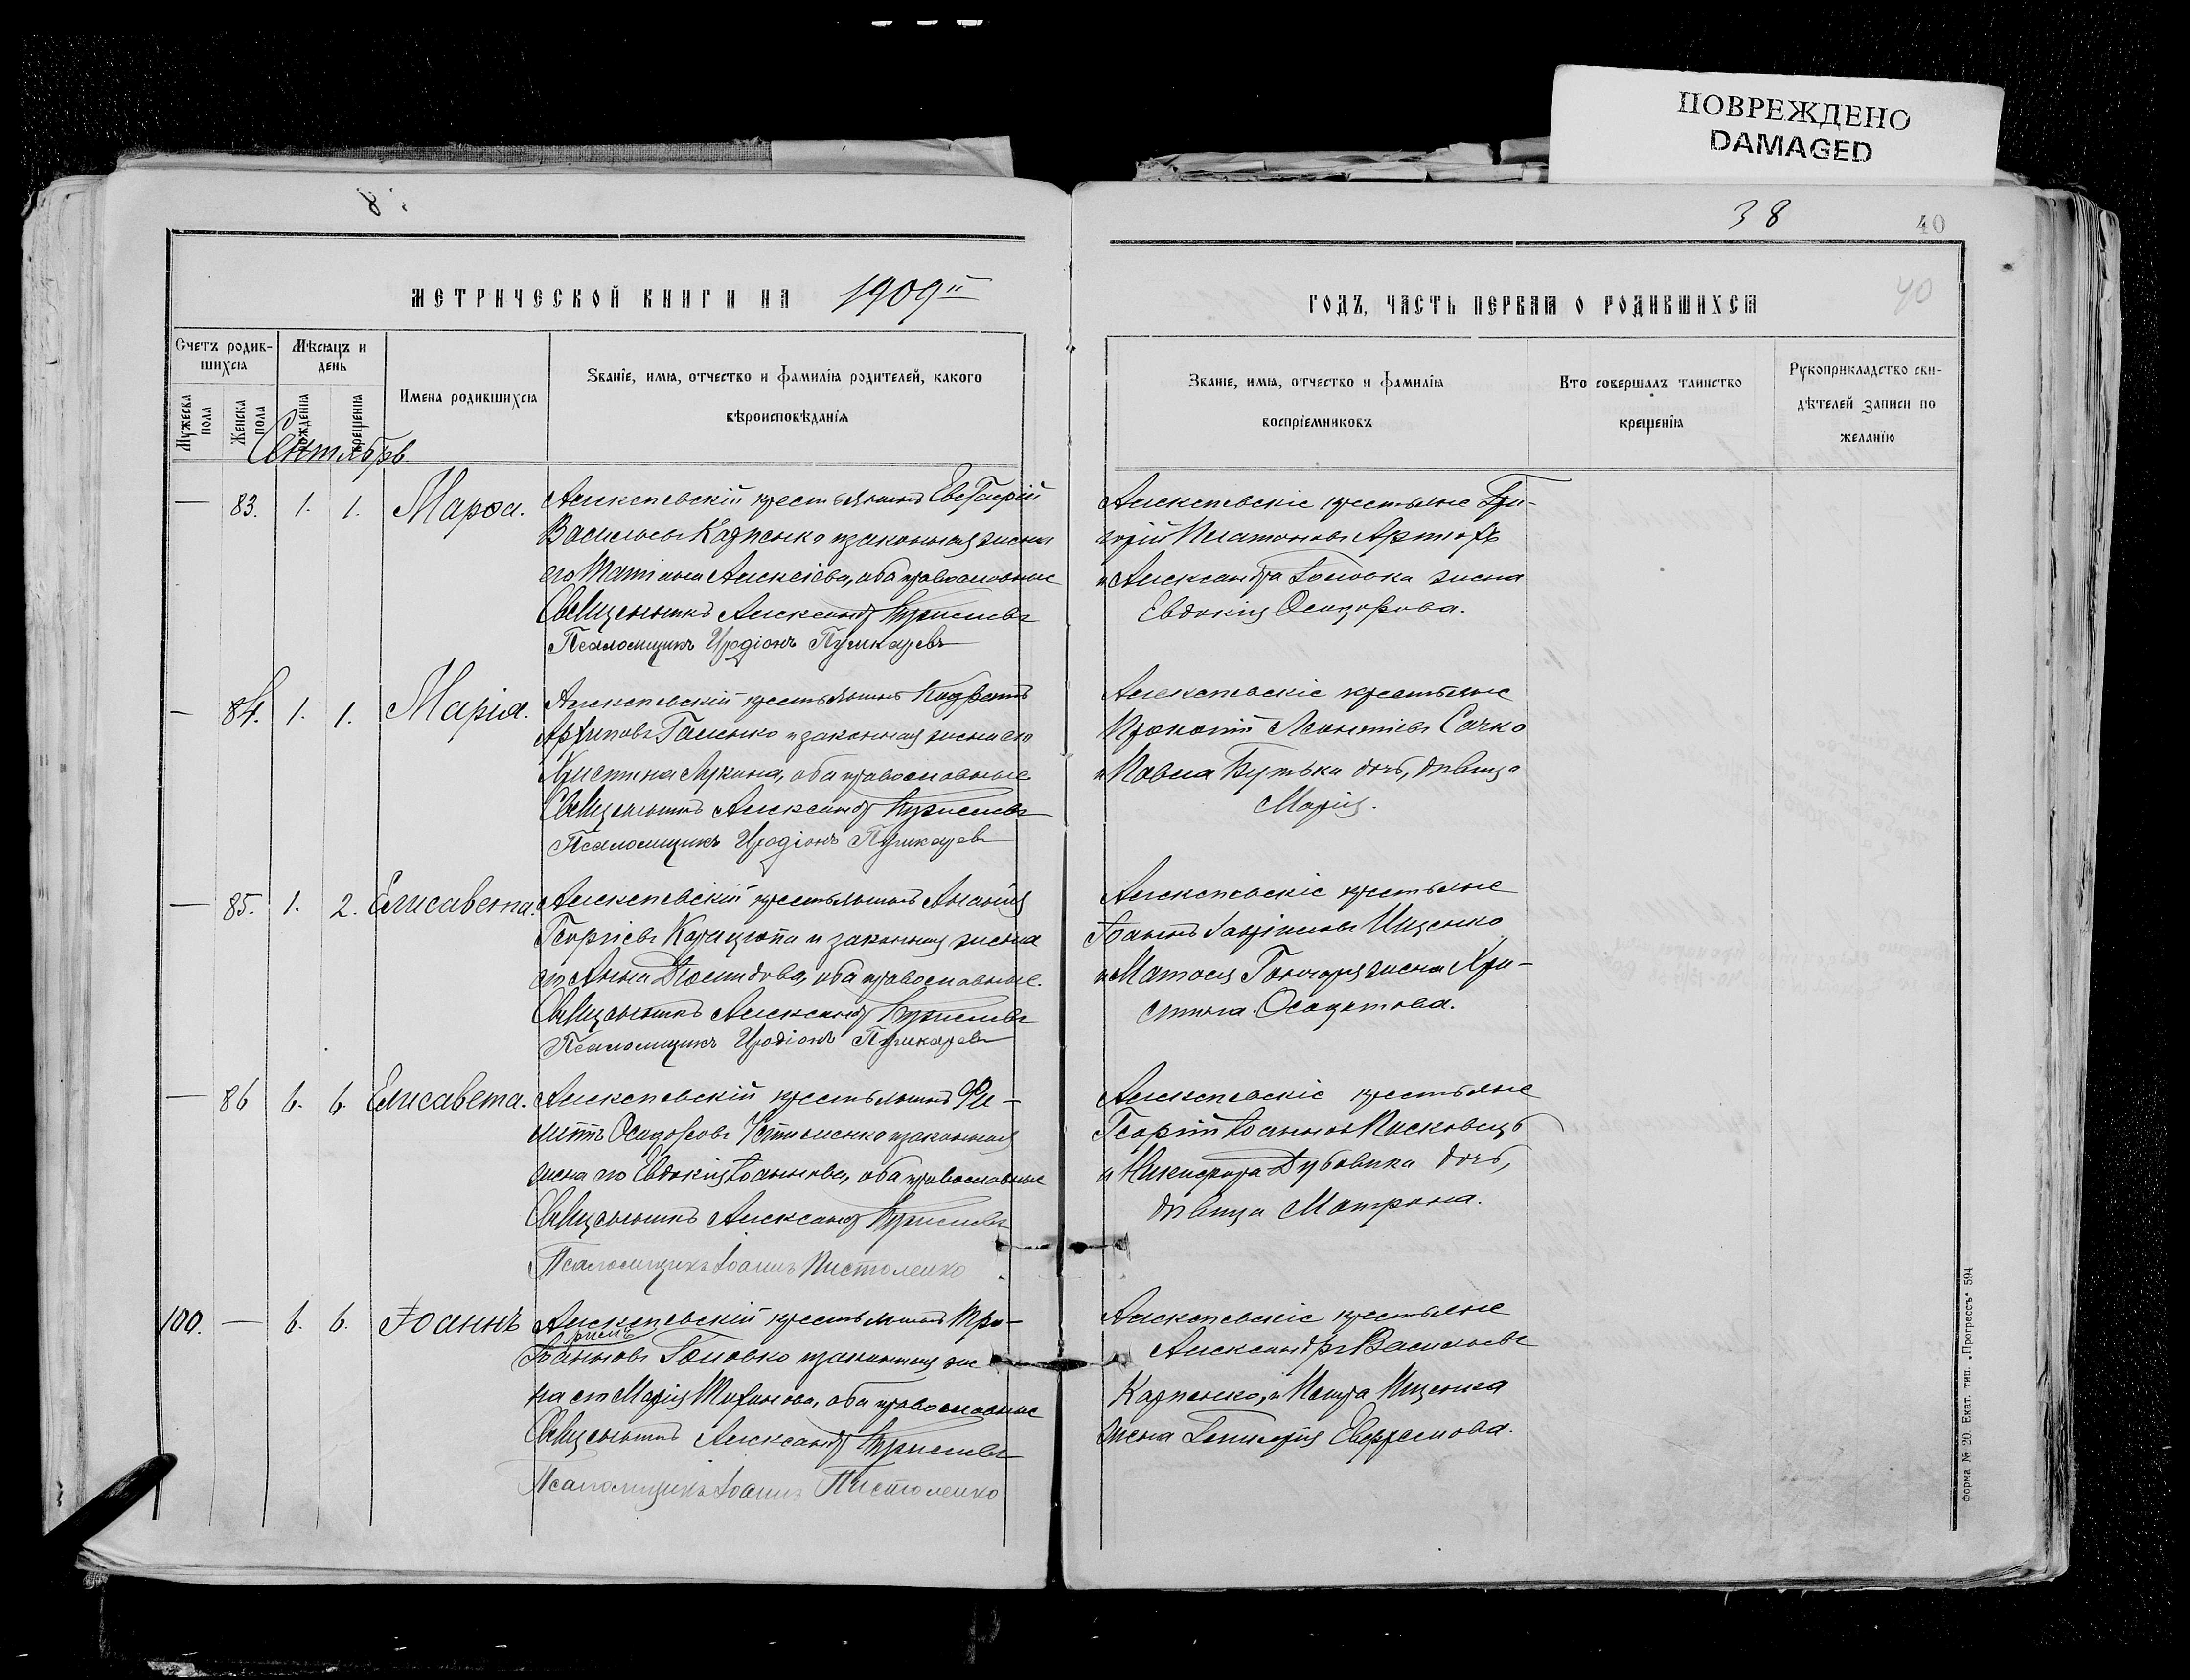 ПОВРЕЖДЕНО
DAMAGED
38
40
МЕТРИЧЕСКОЙ КНИГИ НА 1909ІІ
ГОДЪ, ЧАСТЬ ПЕРВАЯ О РОДИВШИХСЯ
40
Счетъ родив-
шихся
Мужеска пола
Женска пола
Мѣсяцъ и
день
рожденія
крещенія
Имена родившихся
Званіе, имя, отчество и фамилія родителей, какого
вѣроисповѣданія
Званіе, имя, отчество и фамилія
воспріемниковъ
Кто совершалъ таинство
крещенія
Рукоприкладство сви-
дѣтелей записи по
желанію
Сентябрь.
— 83. 1. 1. Марѳа.
Алексѣевскій крестьянинъ
Васильевъ Карпенко и законная жена
его Алексѣева, оба православные
Священникъ Александръ
Псаломщикъ Иродіонъ Пушкаревъ
Алексѣевскіе крестьяне Гри-
горій Платоновъ
и Александра Головка жена
Евдокія
— 84. 1. 1. Марія.
Алексѣевскій крестьянинъ Кодратъ
Архиповъ Галенко и законная жена его
Христина Лукина, оба православные
Священникъ Александръ
Псаломщикъ Иродіонъ Пушкаревъ
Алексѣевскіе крестьяне
Прокопій Леонтіевъ Сачко
и Павла Бутька дочь, дѣвица
Марія.
— 85. 1. 2. Елисавета.
Алексѣевскій крестьянинъ Ананія
Георгіевъ и законная жена
его Анна Діомидова, оба православные.
Священникъ Александръ
Псаломщикъ Иродіонъ Пушкаревъ
Алексѣевскіе крестьяне
Іоаннъ Гавріиловъ Ищенко
и Матѳея Гончаря жена Хри-
стина
— 86 6. 6. Елисавета.
Алексѣевскій крестьянинъ Фи-
липпъ Устименко и законная
жена его Евдокія Іоаннова, оба православные
Священникъ Александръ
Псаломщикъ Іоаннъ Пистоленко
Алексѣевскіе крестьяне
Георгій Іоанновъ
и Никифора Дубовика дочь,
дѣвица Матрона.
100. — 6. 6. Іоаннъ
Алексѣевскій крестьянинъ
Іоанновъ Головко и законная же
на его Марія Тихонова, оба православные
Священникъ Александръ
Псаломщикъ Іоаннъ Пистоленко
Алексѣевскіе крестьяне
Александръ Васильевъ
Карпенко, и Петра Ищенка
жена Гликерія Евфремова.
Форма № 20. Екат. тип. „Прогрессъ“ 594